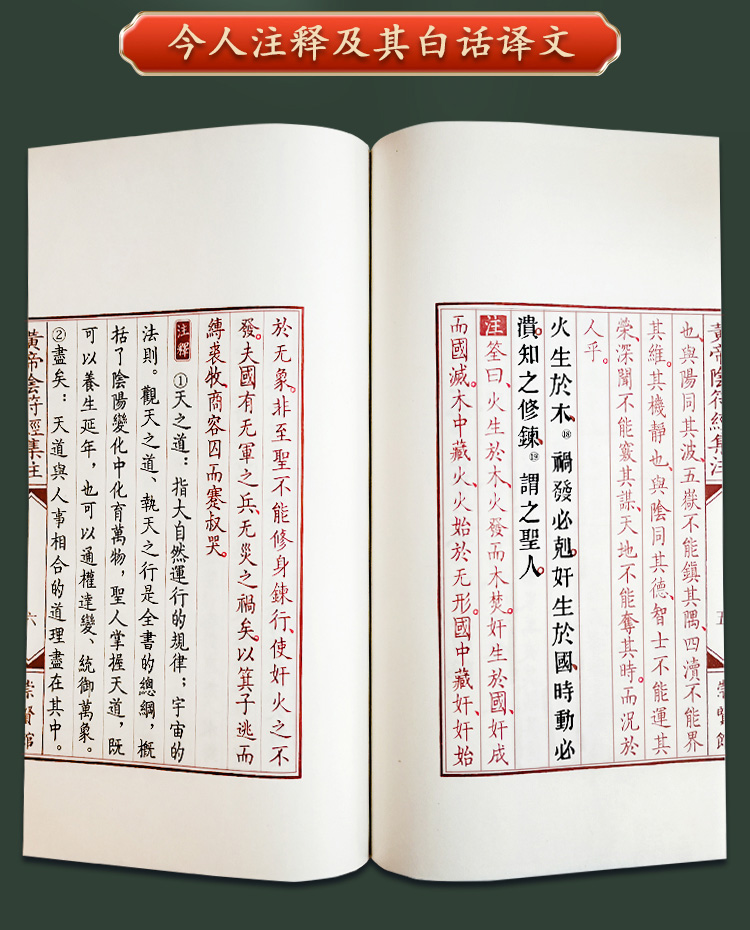 今人注释及其白话译文
黃帝陰符經集注
五
崇賢館
也、與陽同其波、五嶽不能鎮其隅、四瀆不能界
其維。其機靜也、與陰同其德、智士不能運其
榮、深聞不能竅其謀、天地不能奪其時。而況於
人乎。
火生於木⑱禍發必剋。奸生於國、時動必
潰。知之修鍊⑲謂之聖人。
注 筌曰、火生於木、火發而木焚。奸生於國、奸成
而國滅。木中藏火、火始於无形。國中藏奸、奸始
於无象。非至聖不能修身鍊行、使奸火之不
發。夫國有无軍之兵、无災之禍矣。以箕子逃而
縛裘牧、商容囚而蹇叔哭。
注釋 ①天之道：指大自然運行的規律；宇宙的
法則。觀天之道、執天之行是全書的總綱，概
括了陰陽變化中化育萬物，聖人掌握天道，既
可以養生延年，也可以通權達變、統御萬象。
②盡矣：天道與人事相合的道理盡在其中。
黃帝陰符經集注
六
崇賢館